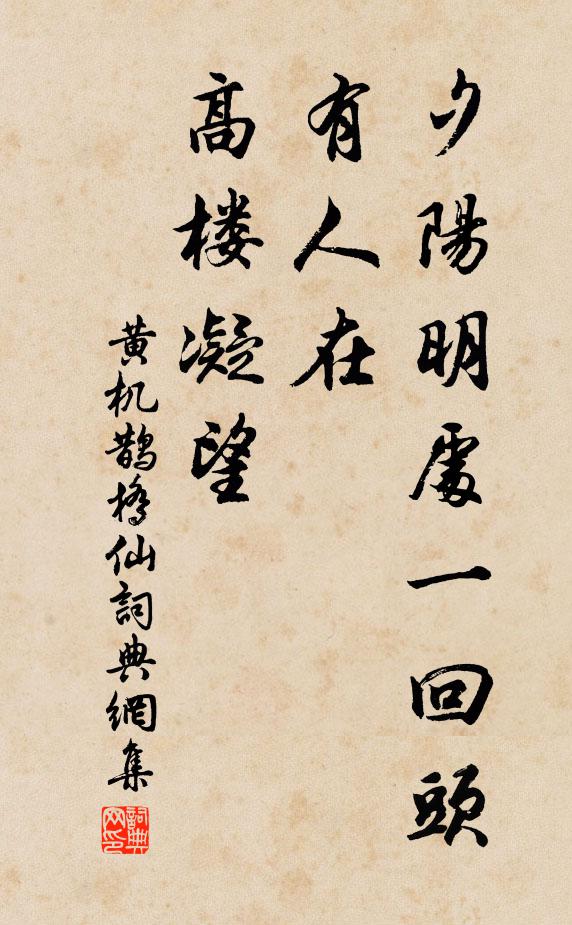 夕陽明處一回頭
有人在
高楼凝望
黄机鹊橋仙詞典網集
詞典网印